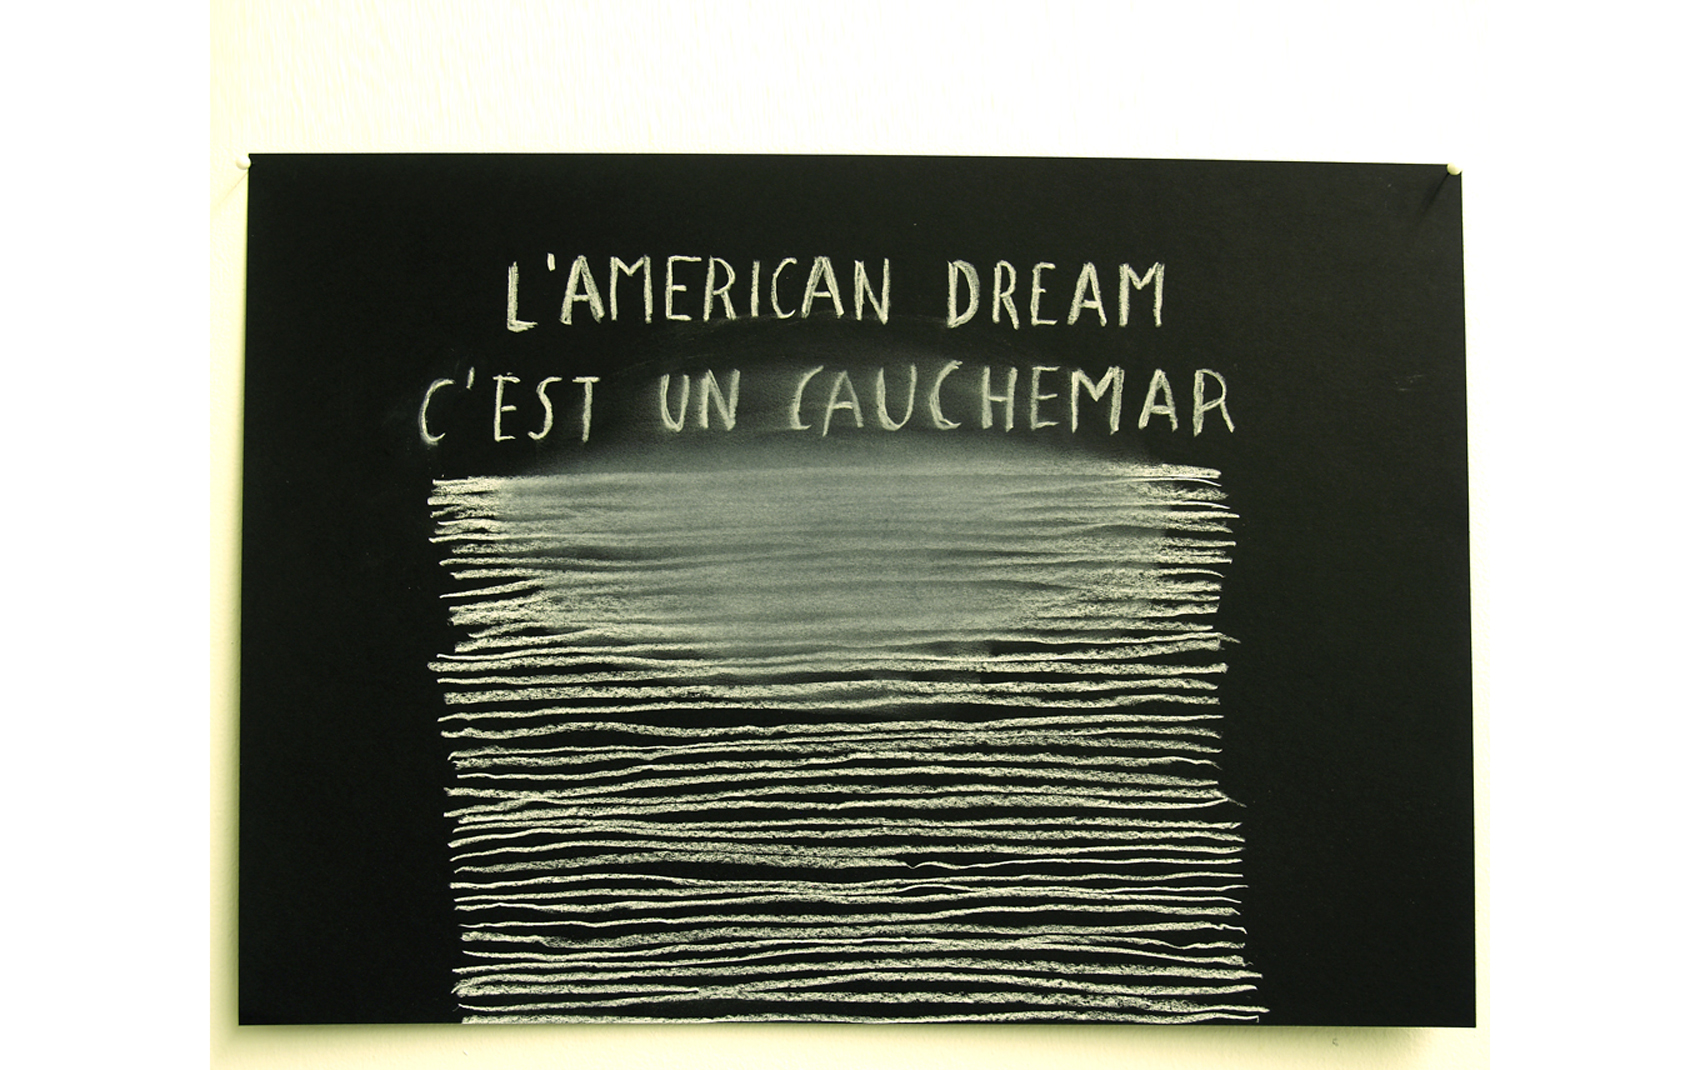 L'AMERICAN DREAM
C'EST UN CAUCHEMAR